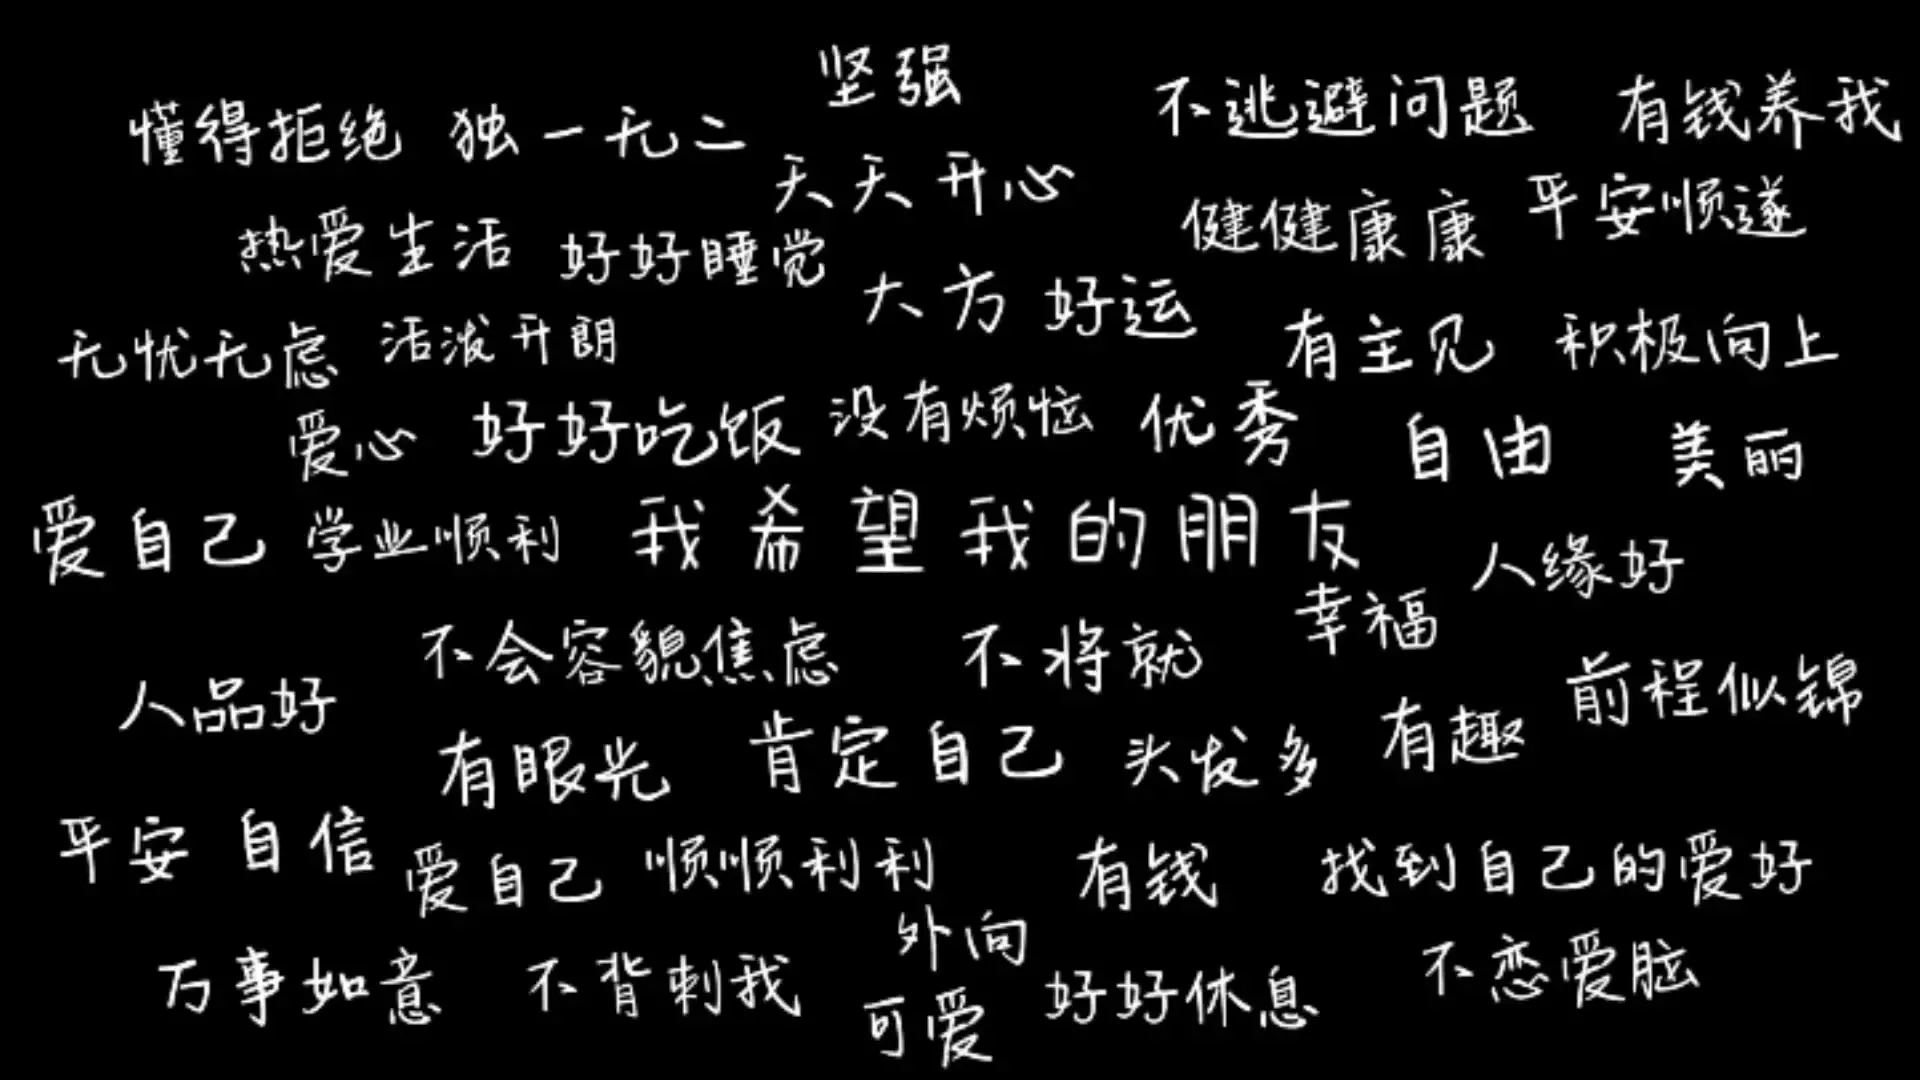 坚强
懂得拒绝 独一无二
不逃避问题 有钱养我
天天开心
健健康康 平安顺遂
热爱生活 好好睡觉
大方 好运
无忧无虑 活泼开朗
有主见 积极向上
爱心 好好吃饭 没有烦恼 优秀
自由 美丽
爱自己 学业顺利 我希望我的朋友
人缘好
幸福
不会容貌焦虑 不将就
人品好
前程似锦
有眼光 肯定自己 头发多 有趣
平安 自信
爱自己 顺顺利利 有钱 找到自己的爱好
外向
万事如意 不背刺我
好好休息 不恋爱脑
可爱